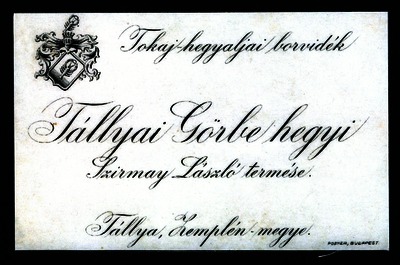 Tokaj-hegyaljai borvidék
Tállyai Görbe hegyi
Szirmay László termése.
Tállya, Zemplén-megye.
POSNER, BUDAPEST